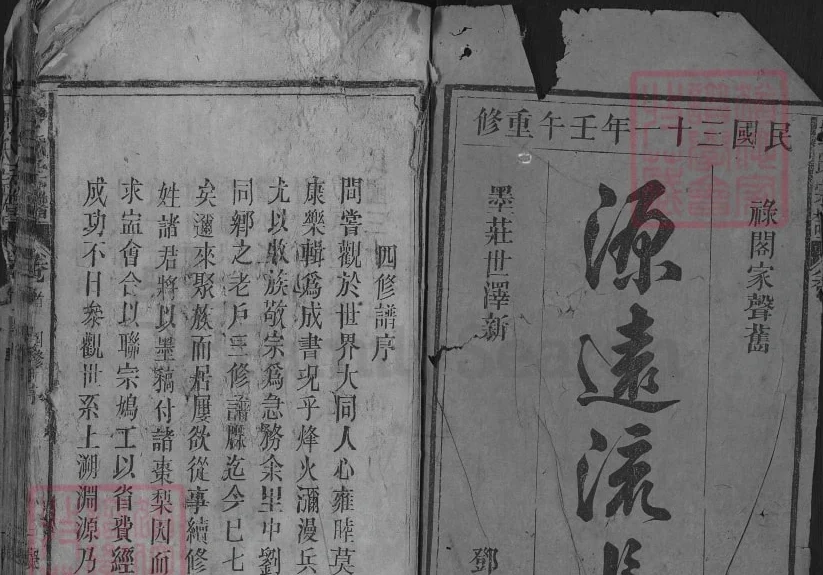 民國三十一年壬午重修
祿閣家聲舊
源遠流長
墨莊世澤新
鄧
四修譜序
間嘗觀於世界大同人心雍睦莫
康樂輯為成書況乎烽火瀰漫兵
尤以收族敬宗為急務余里中劉
同鄉之老戶三修譜牒迄今已七
矣邇來聚族而居屢欲從事續修
姓諸君將以墨稿付諸棗梨因而
求盍會合以聯宗鳩工以省費經
成功不日衆觀世系上溯淵源乃